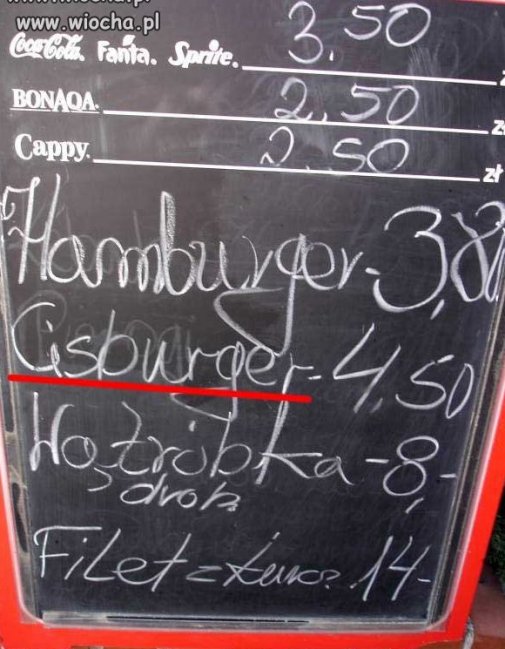 www.wiocha.pl
www.wiocha.pl
Coca-Cola. Fanta. Sprite. 3.50
BONAQA. 2.50 zł
Cappy. 2.50 zł
Hamburger - 3,80
Cisburger - 4,50
Wątróbka - 8,-
drob.
Filet z 14-